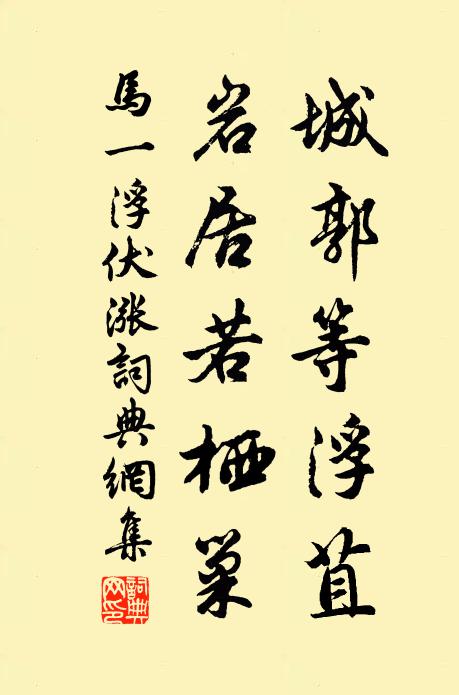 城郭等浮苴
岩居若栖巢
馬一浮伏漲詞典網集
詞典網印